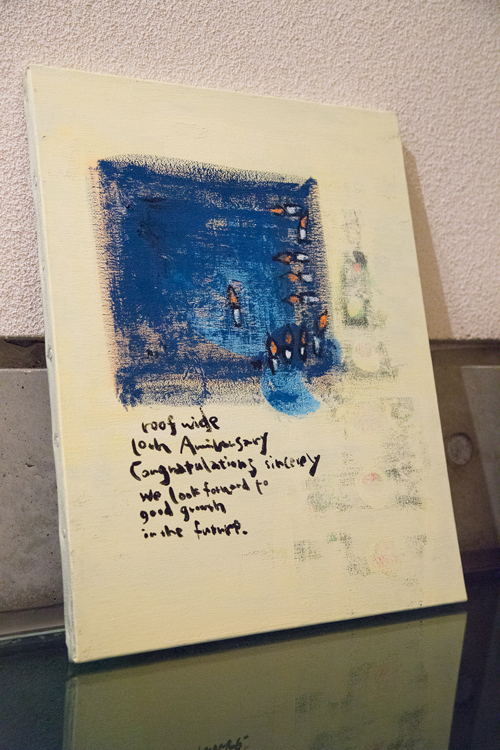 roof wide
10th Anniversary
Congratulations sincerely
we look forward to
good growth
in the future.